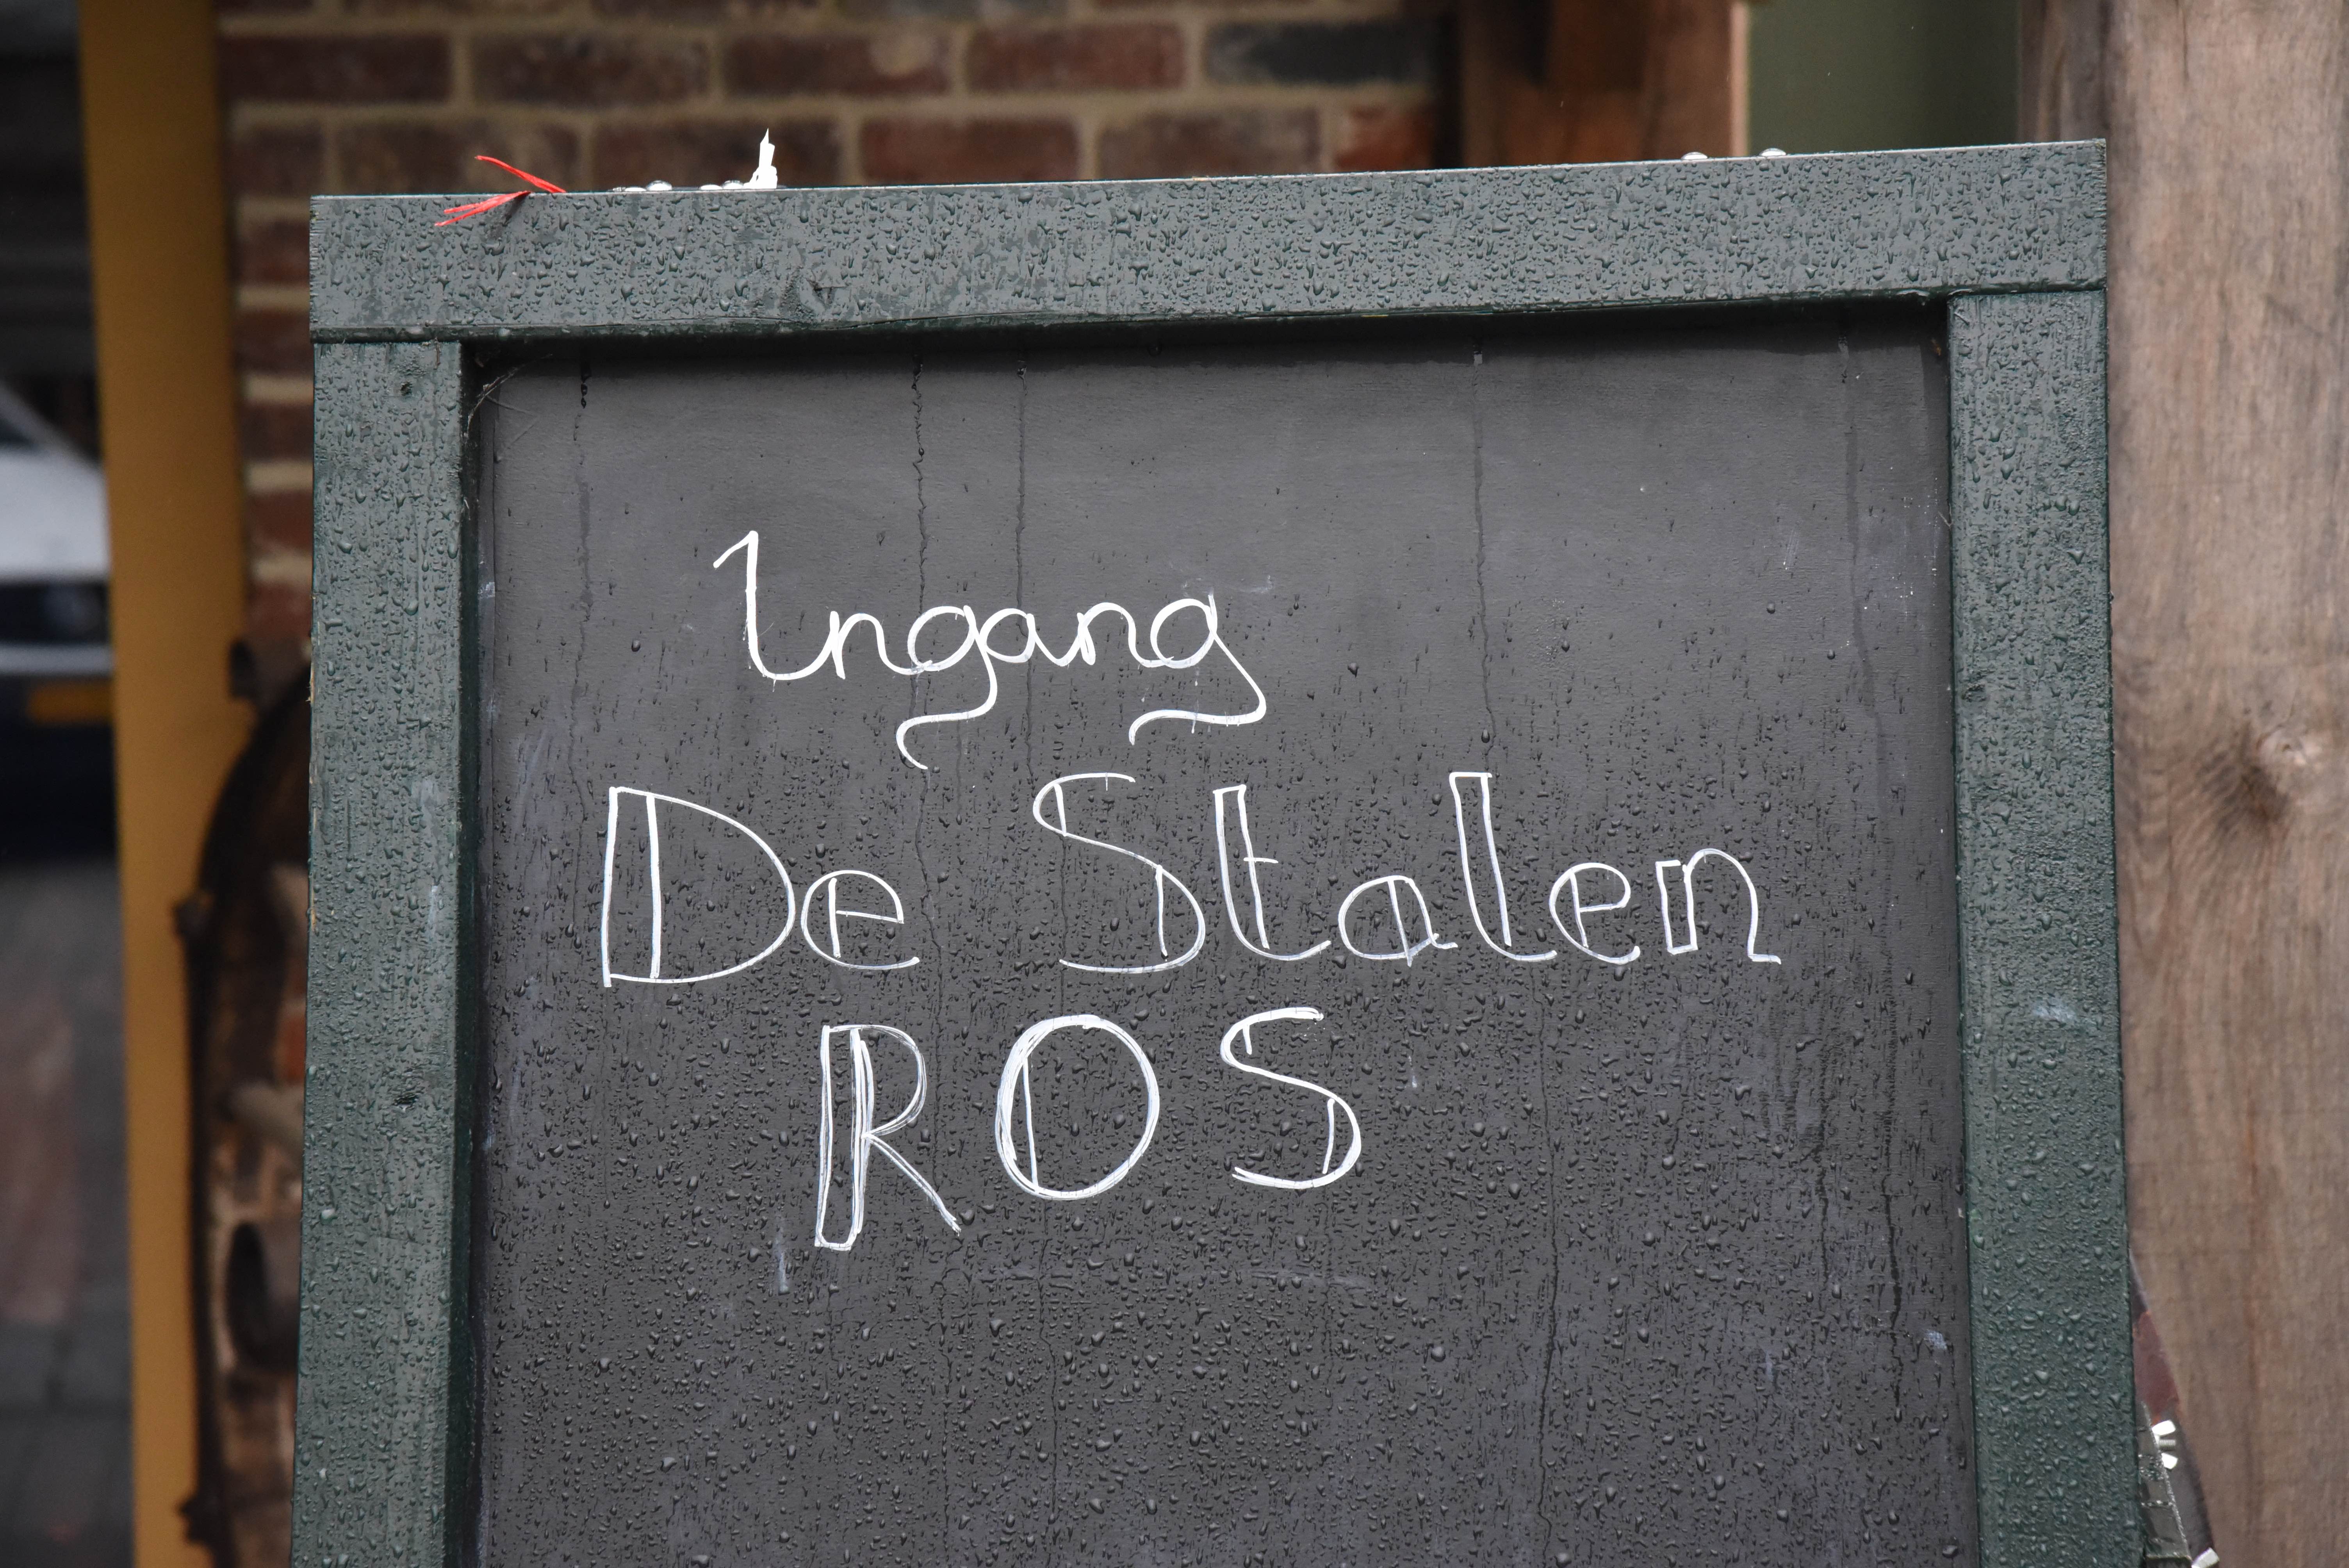 Ingang
De Stalen
ROS